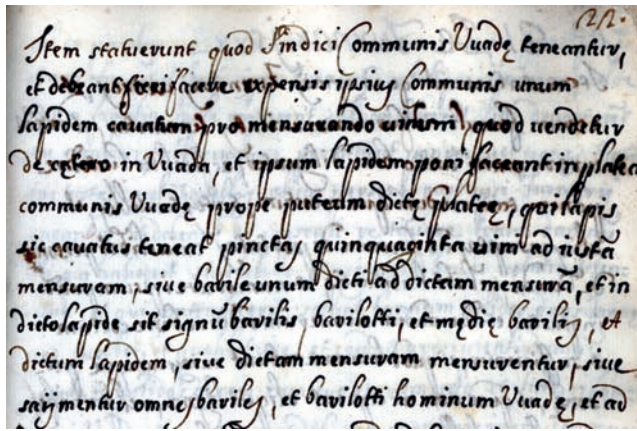 22.
Item statuerunt quod Sindici Communis Uuadę teneantur,
et debeant fieri facere expensis ipsius Communis unum
lapidem cauatum pro mensurando uinum quod uendetur
de cętero in Uuada, et ipsum lapidem poni faceant in platea
communis Uuadę prope puteum dictę plateę, qui lapis
sic cauatus teneat pinctas quinquaginta uini ad iustã
mensuram, siue barile unum dicti ad dictam mensurã, et in
dicto lapide sit signũ barilis, barilotti, et medię barilis, et
dictum lapidem, siue dictam mensuram mensurentur, siue
saijmentur omnes bariles, et barilotti hominum Uuadę, et ad